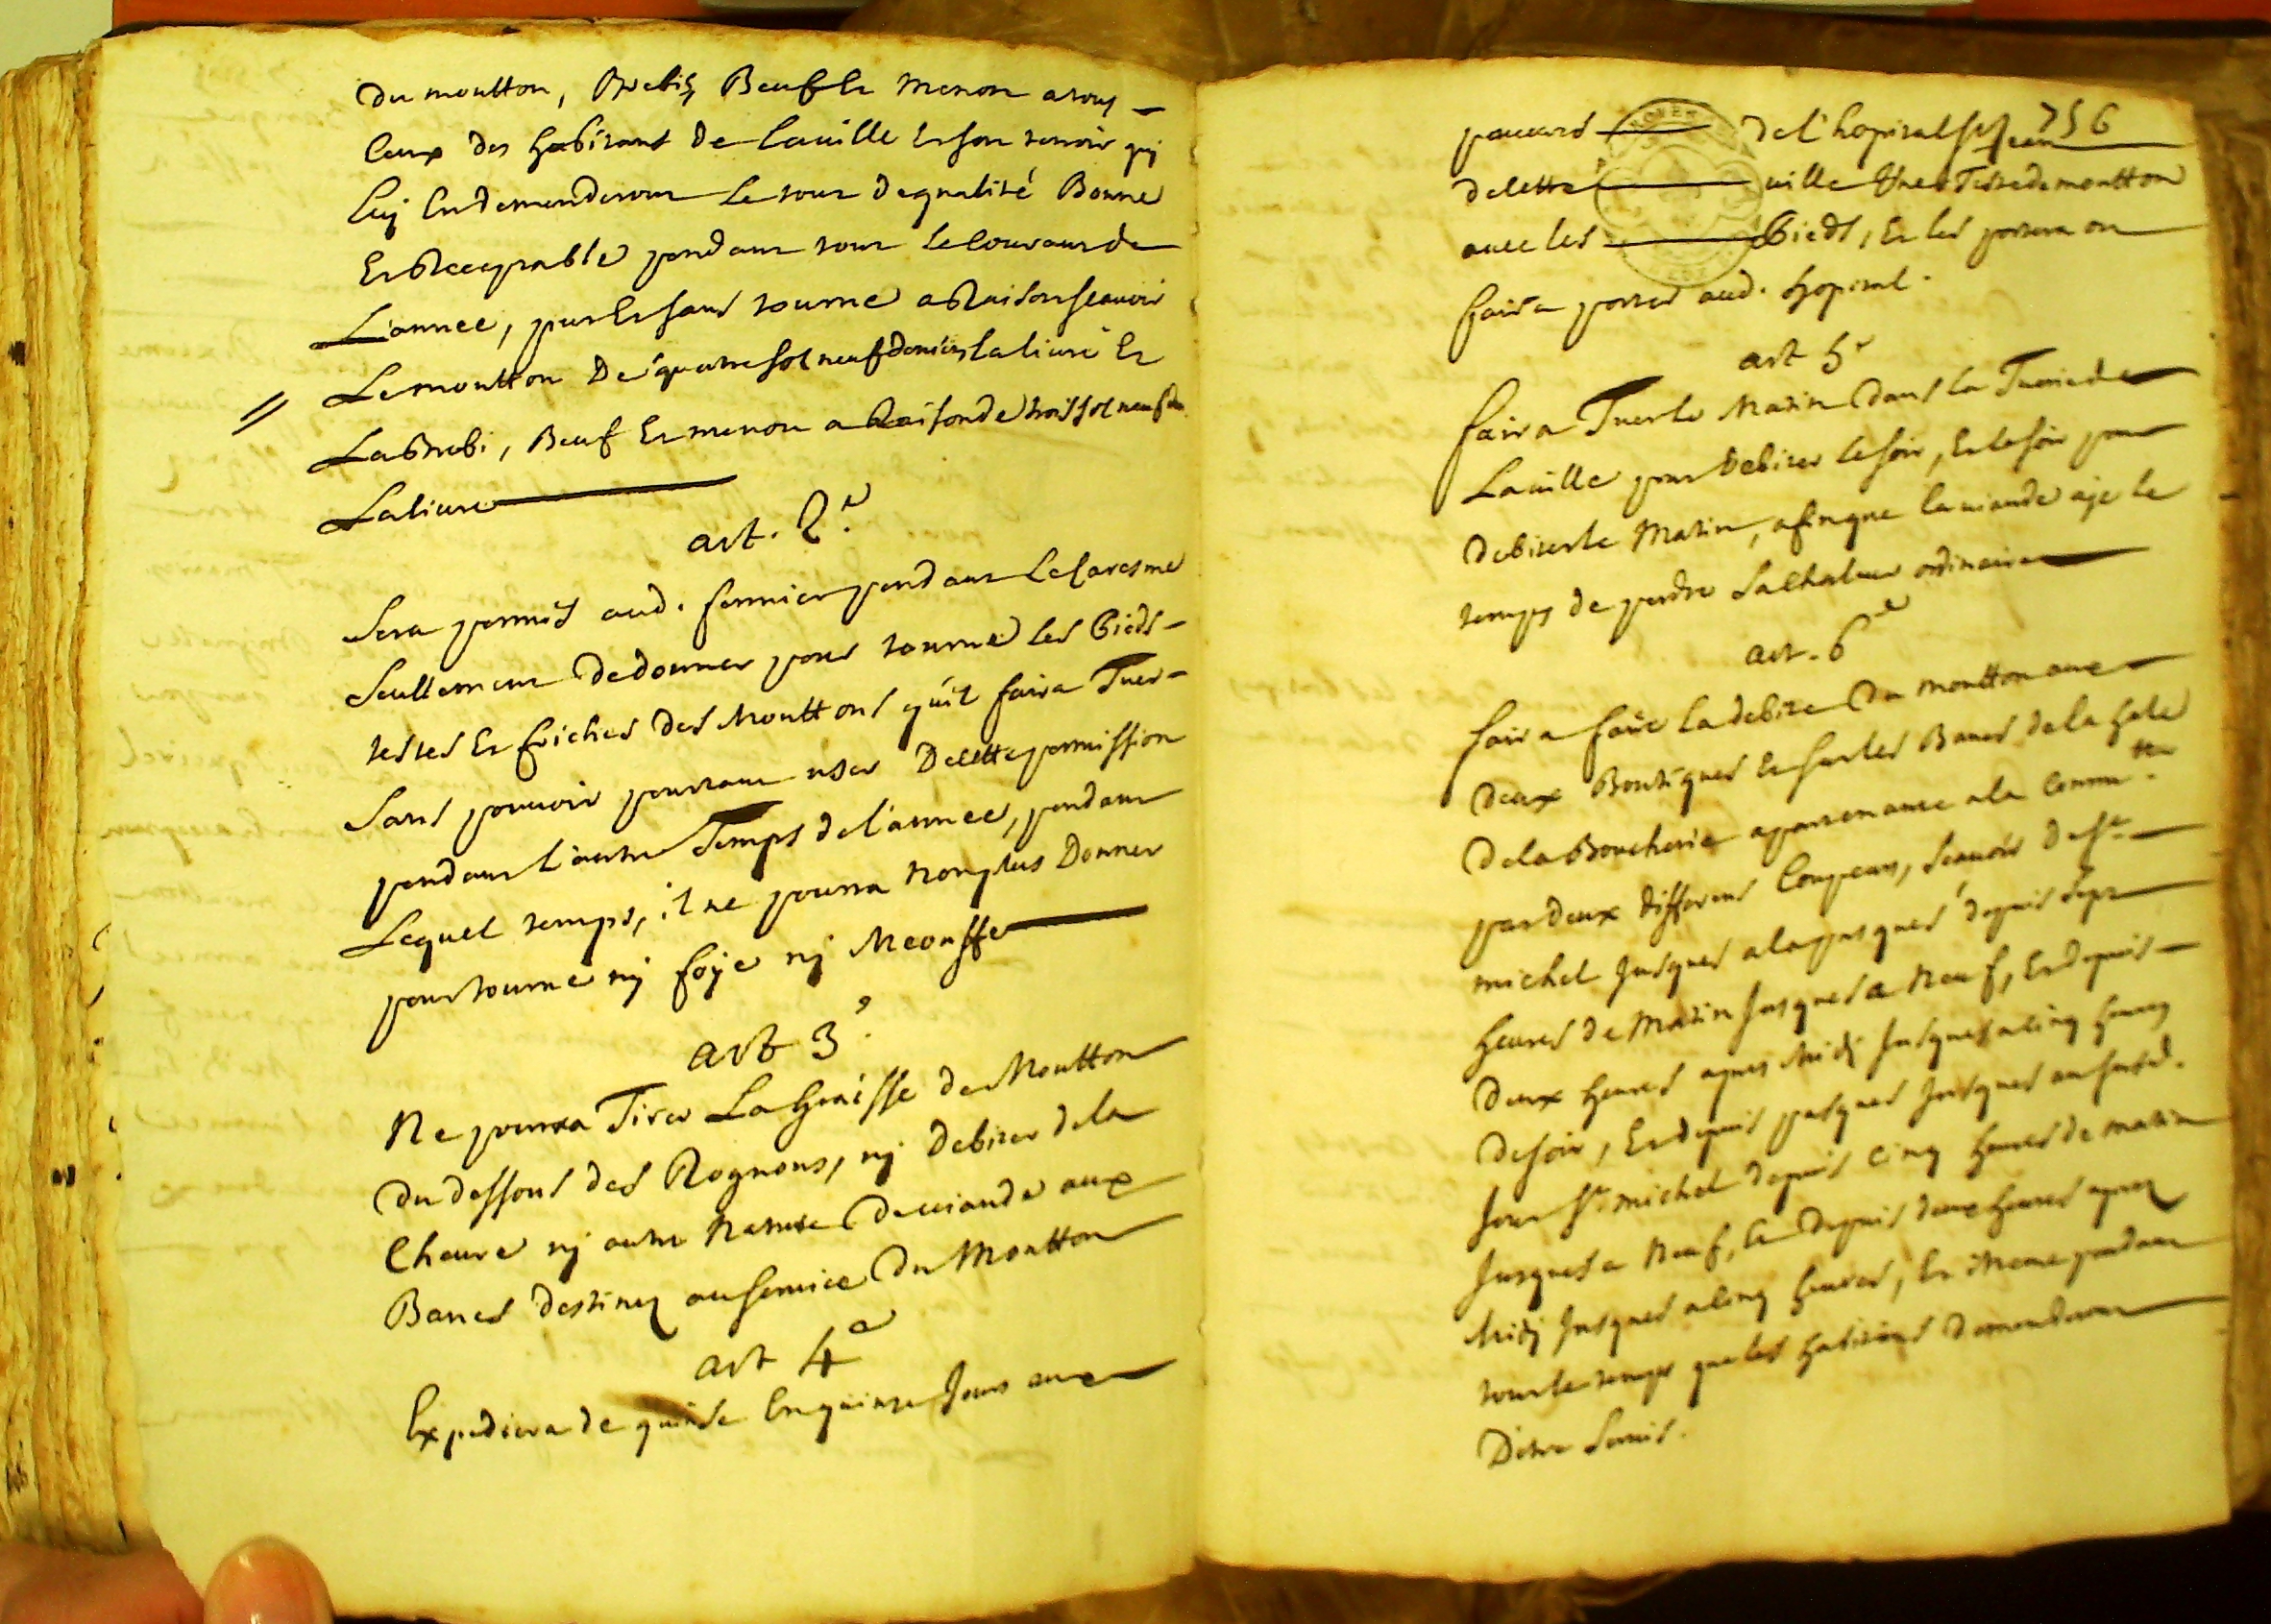 du moutton, Brebis, Beuf Et menon a tous
Ceux des habitans de la uille Et son terroir qui
luy En demenderont Le tout de qualité Bonne
Et Receptable pendant tout Le Courant de
L'annee, pur Et sans tourne a Raison scauoir
Le moutton De quatre sol neuf deniers la liure Et
La Brebi, Beuf Et menon a Raison de trois sol neuf de.
La liure
art. 2e.
Sera permis aud. fermier pendant Le Caresme
Seullement de donner pour tourne les Pieds
testes Et friches des Mouttons qu'il faira Tuer
Sans pouuoir pourtant user De cette permission
pendant L'autre Temps de l'annee, pendant
Lequel temps, il ne pourra non plus Donner
pour tourne nj foye nj Meousse
art 3e.
Ne pourra Tirer La Graisse de Moutton
du dessous des Rognons, nj Debiter de la
Cheure nj autre Nature de uiande aux
Bancs destinez au seruice Du Moutton
art 4e
Expediera de quinse En quinze Jours aux
756
pauures de l'hopital St Jean
de cette uille Une Teste de moutton
auec les Pieds, Et les portera ou
faira porter aud. hopital.
art 5e
faira Tuer le Matin dans la Tuerie de
La uille pour Debiter le soir, Et le soir pour
debiter le Matin, afin que la uiande aje le
temps de perdre Sa Chaleur ordinaire
art. 6e
faira faire la debite Du moutton aux
deux Boutiques Et sur les Bancs de la hale
de la Boucherie apartenante a la Commtté.
par deux differens Coupeurs, Scauoir de St
michel Jusques a la pasques depuis sept
heures de Matin Jusques a Neuf, Et depuis
deux heures apres Midj Jusques a Cinq heures
de soir, Et depuis pasques Jusques au susd.
Jour St. michel depuis cinq heures de matin
Jusques a Neuf, Et Depuis deux heures apres
Midj Jusques a Cinq heures, Et Mene pendant
tout le temps que les habitans demanderont
D'etre Seruis.